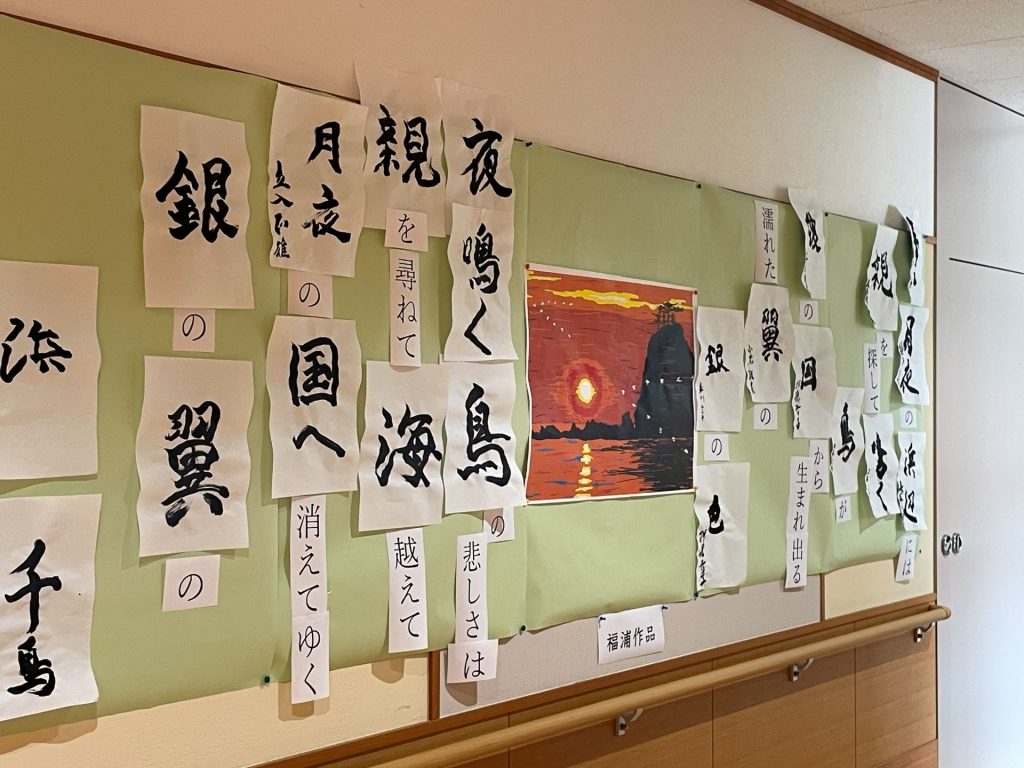 月夜の浜辺には
親を探して鳴く
鳥が
の国から
生まれ出る
濡れた翼の
銀の色
夜鳴く鳥の
悲しさは
親を尋ねて
海越えて
月夜の国へ
消えてゆく
銀の翼の
浜千鳥
福浦作品